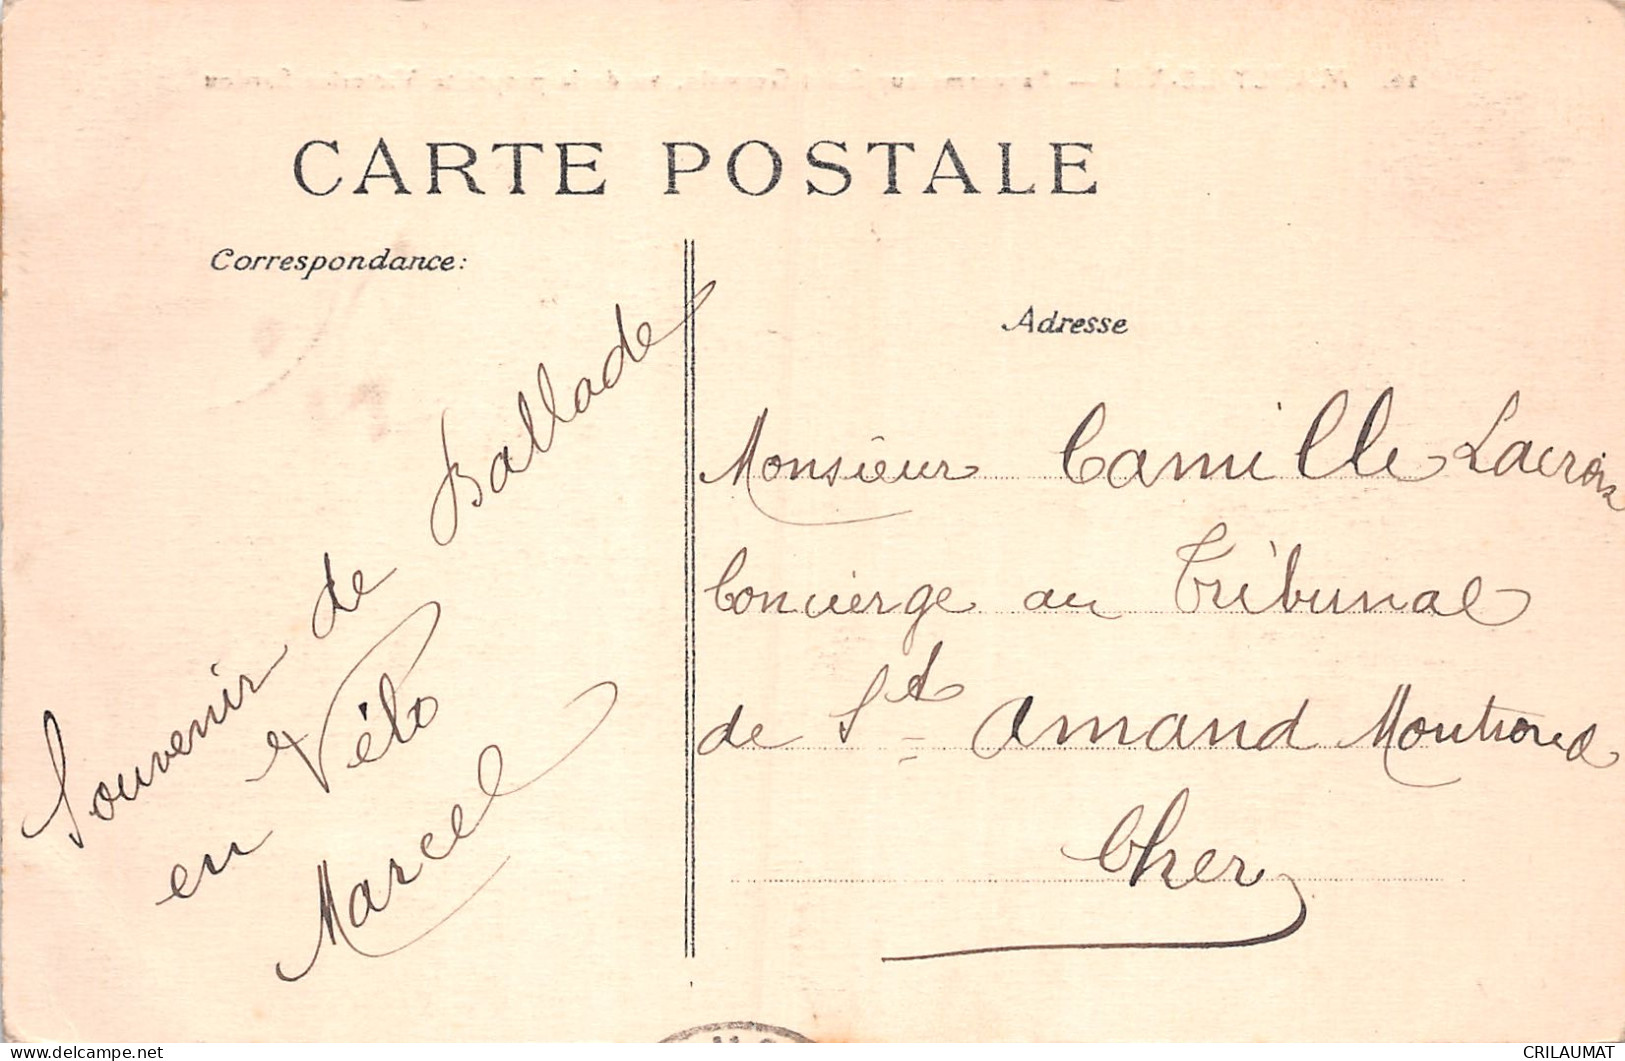 CARTE POSTALE
Correspondance:
Souvenir de Ballade
en Vélo
Marcel
Adresse
Monsieur Camille Lacroix
Concierge au Tribunal
de St Amand Montrond
Cher
CRILAUMAT